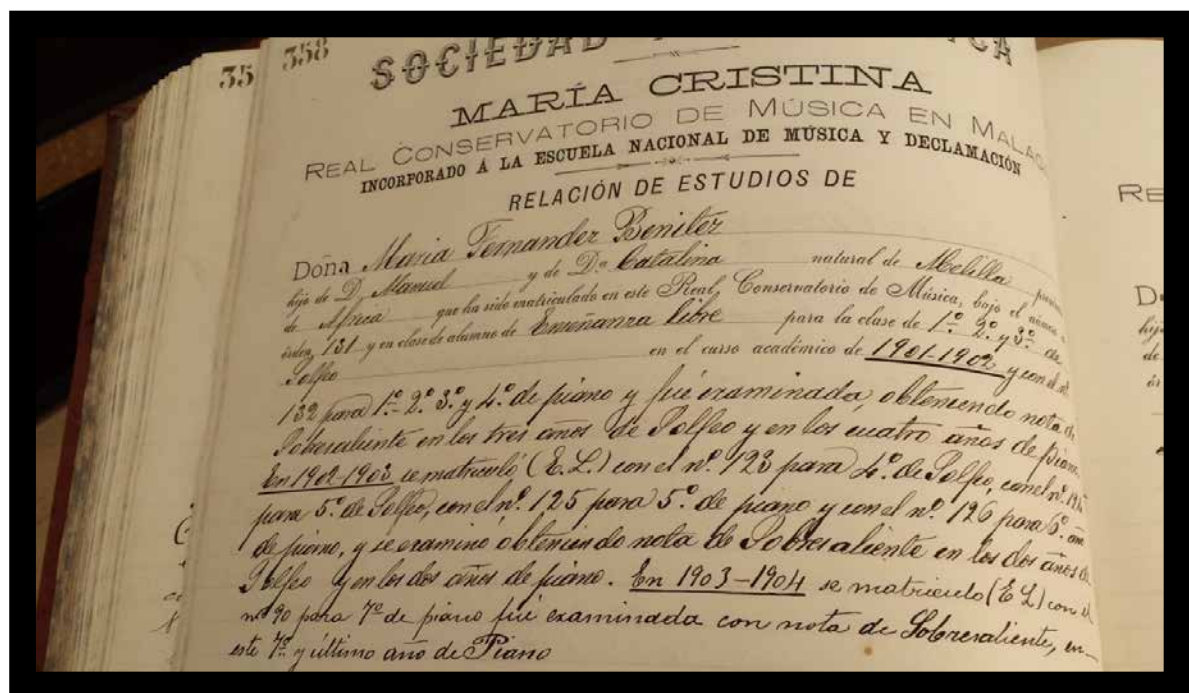 35
358
SOCIEDAD
MARÍA CRISTINA
REAL CONSERVATORIO DE MÚSICA EN MALAG
INCORPORADO Á LA ESCUELA NACIONAL DE MÚSICA Y DECLAMACIÓN
RELACIÓN DE ESTUDIOS DE
Doña Maria Fernandez Benitez
hijo de D. Manuel y de Dª Catalina natural de Melilla
de Africa que ha sido matriculado en este Real Conservatorio de Música, bajo el número
órden, 131 y en clase de alumno de Enseñanza libre para la clase de 1º 2º y 3º de
Solfeo en el curso académico de 1901-1902 y con el nº
132 para 1º 2º 3º y 4º de piano y fué examinada, obteniendo nota de
Sobresaliente en los tres años de Solfeo y en los cuatro años de piano.
En 1902-1903 se matriculó (E. L.) con el nº 123 para 4º de Solfeo, con el nº
para 5º de Solfeo, con el nº 125 para 5º de piano y con el nº 126 para 6º año
de piano, y se examinó obteniendo nota de Sobresaliente en los dos años de
Solfeo y en los dos años de piano. En 1903-1904 se matriculó (E L) con el
nº 90 para 7º de piano fué examinada con nota de Sobresaliente, en
este 7º y último año de Piano
RE
D
hij
de